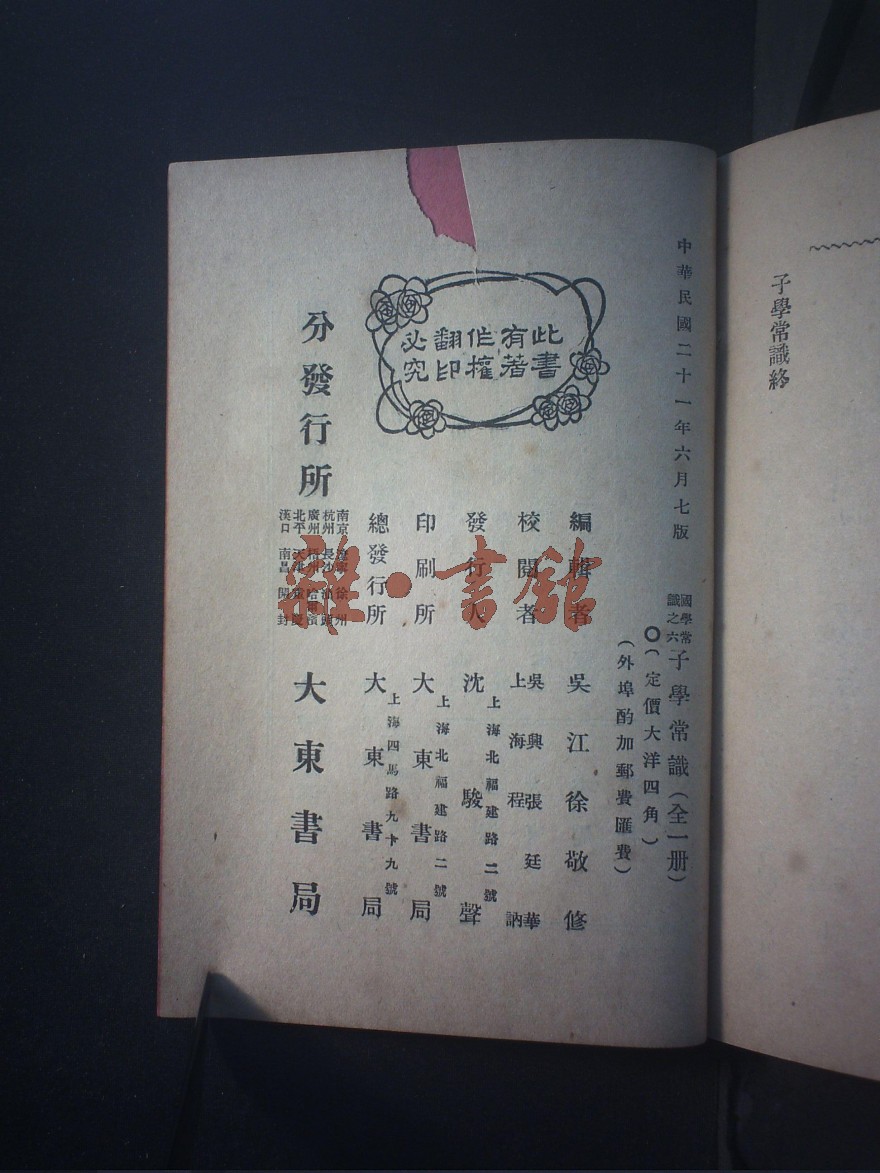 子學常識終
中華民國二十一年六月七版
國學常識之六 子學常識(全一册)
〇(定價大洋四角)
(外埠酌加郵費匯費)
此書
有著
作權
翻印
必究
編輯者 吳江徐敬修
校閱者 吳興張廷華
上海程 訥
發行人 沈駿聲
上海北福建路二號
印刷所 大東書局
上海北福建路二號
總發行所 大東書局
上海四馬路九十九號
分發行所 大東書局
南京 遼寧 徐州
杭州 長沙 汕頭
廣州 梧州 哈爾濱
北平 天津 重慶
漢口 南昌 開封
雜·書館